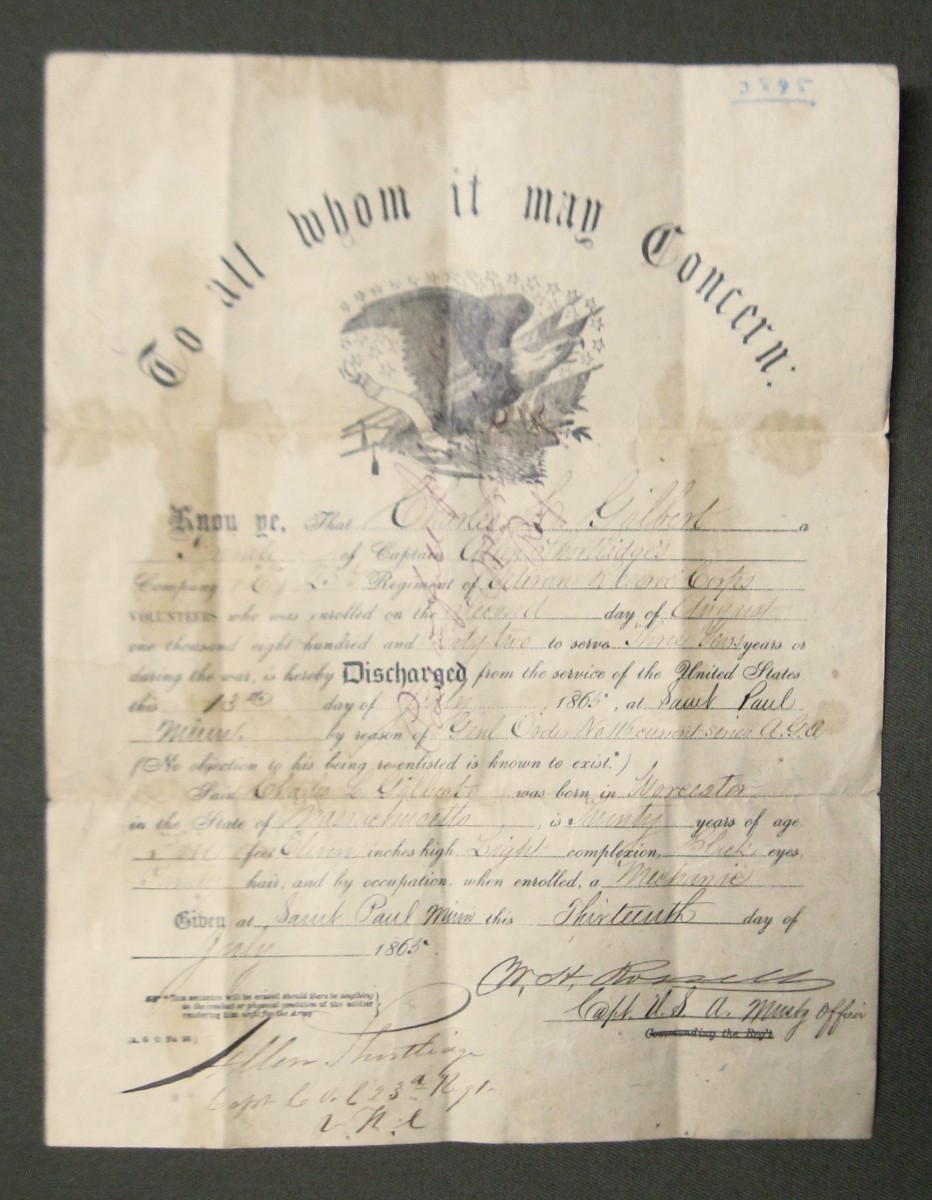 To all whom it may Concern:
Know ye, That Charles L. Gilbert a
of Captain
Company Regiment of Veteran Reserve Corps
VOLUNTEERS who was enrolled on the Second day of August
one thousand eight hundred and Sixty two to serve Three Years years or
during the war, is hereby Discharged from the service of the United States
this 13th day of July, 1865, at Saint Paul
Minn. by reason of Genl Order No 116 current series A.G.O
(No objection to his being re-enlisted is known to exist.*)
Said Charles L. Gilbert was born in Worcester
in the State of Massachusetts, is years of age
feet Eleven inches high, Light complexion, Black eyes,
hair, and by occupation, when enrolled, a Mechanic
Given at Saint Paul Minn this Thirteenth day of
July 1865.
W. H.
Capt. U. S. A. Mustg Officer
Commanding the Reg't
*This sentence will be erased should there be anything
in the conduct or physical condition of the soldier
rendering him unfit for the Army
[A. G. O. No. 99.]
Capt 23d Regt
V R C